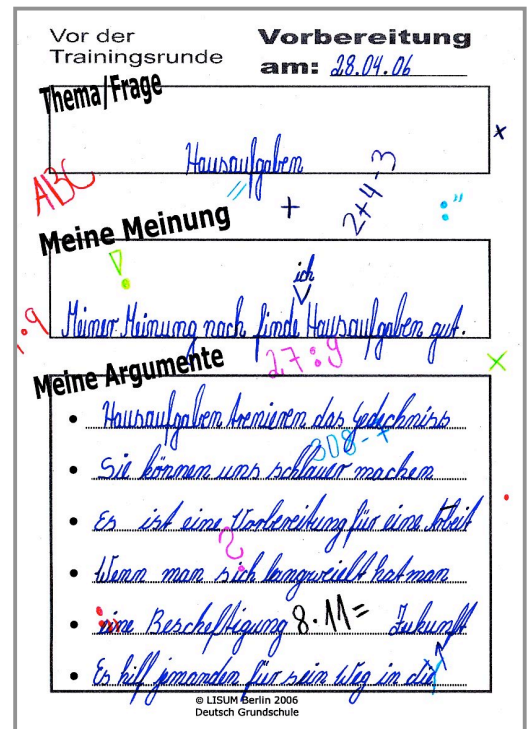 Vor der
Trainingsrunde
Vorbereitung
am: 28.04.06
Thema/Frage
x
Hausaufgaben
ABC
"
+
2+4-3
:"
Meine Meinung
!
ich
:9
Meiner Meinung nach finde Hausaufgaben gut.
27:9
Meine Argumente
x
• Hausaufgaben tremieren das Gedechniss
308-+
• Sie können uns schlauer machen
• Es ist eine Vorbereitung für eine Arbeit
?
• Wenn man sich langweielt hat man
• eine Bescheftigung 8·11= Zukunft
• Es hilf jemanden für sein Weg in die
© LISUM Berlin 2006
Deutsch Grundschule